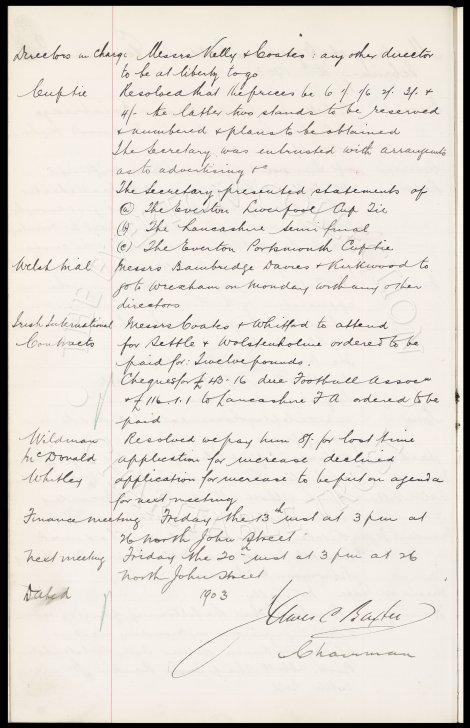 Directors in Charge Messrs Kelly & Coates: any other director
to be at liberty to go
Cuptie Resolved that the prices be 6d 1/- 1/6 2/- 2/- &
4/- the latter two stands to be reserved
& numbered & plans to be obtained
The Secretary was entrusted with arrangements
as to advertising &c
The Secretary presented statements of
(a) The Everton Liverpool Cup Tie
(b) The Lancashire Semi final
(c) The Everton Portsmouth Cuptie
Welsh trial Messrs Bainbridge Davies & Kirkwood to
go to Wrexham on Monday with any other
directors
Irish International Messrs Coates & Whitford to attend
Contracts for Settle & Wolstenholme ordered to be
paid for: Twelve pounds.
Cheques for £43-16 due Football Assocn
& £116.1.1 to Lancashire F A ordered to be
paid
Wildman Resolved we pay him 8/- for lost time
McDonald application for increase declined
Whitley application for increase to be put on agenda
for next meeting
Finance meeting Friday the 13th inst at 3 pm at
26 North John Street
Next meeting Friday the 20th inst at 3 pm at 26
North John Street
Dated 1903
James C Baxter
Chairman